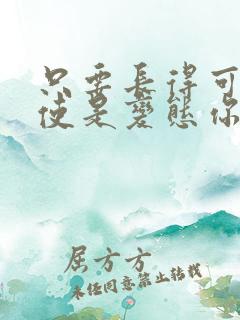 只要长得可
使是变态你
屈方方
未经同意禁止转载